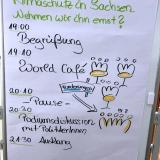 Klimaschutz in Sachsen
Nehmen wir ihn ernst?
19:00
Begrüßung
19:10
World Café
20:10
- Pause -
20:30
Podiumsdiskussion
mit PolitikerInnen
21:30 Ausklang